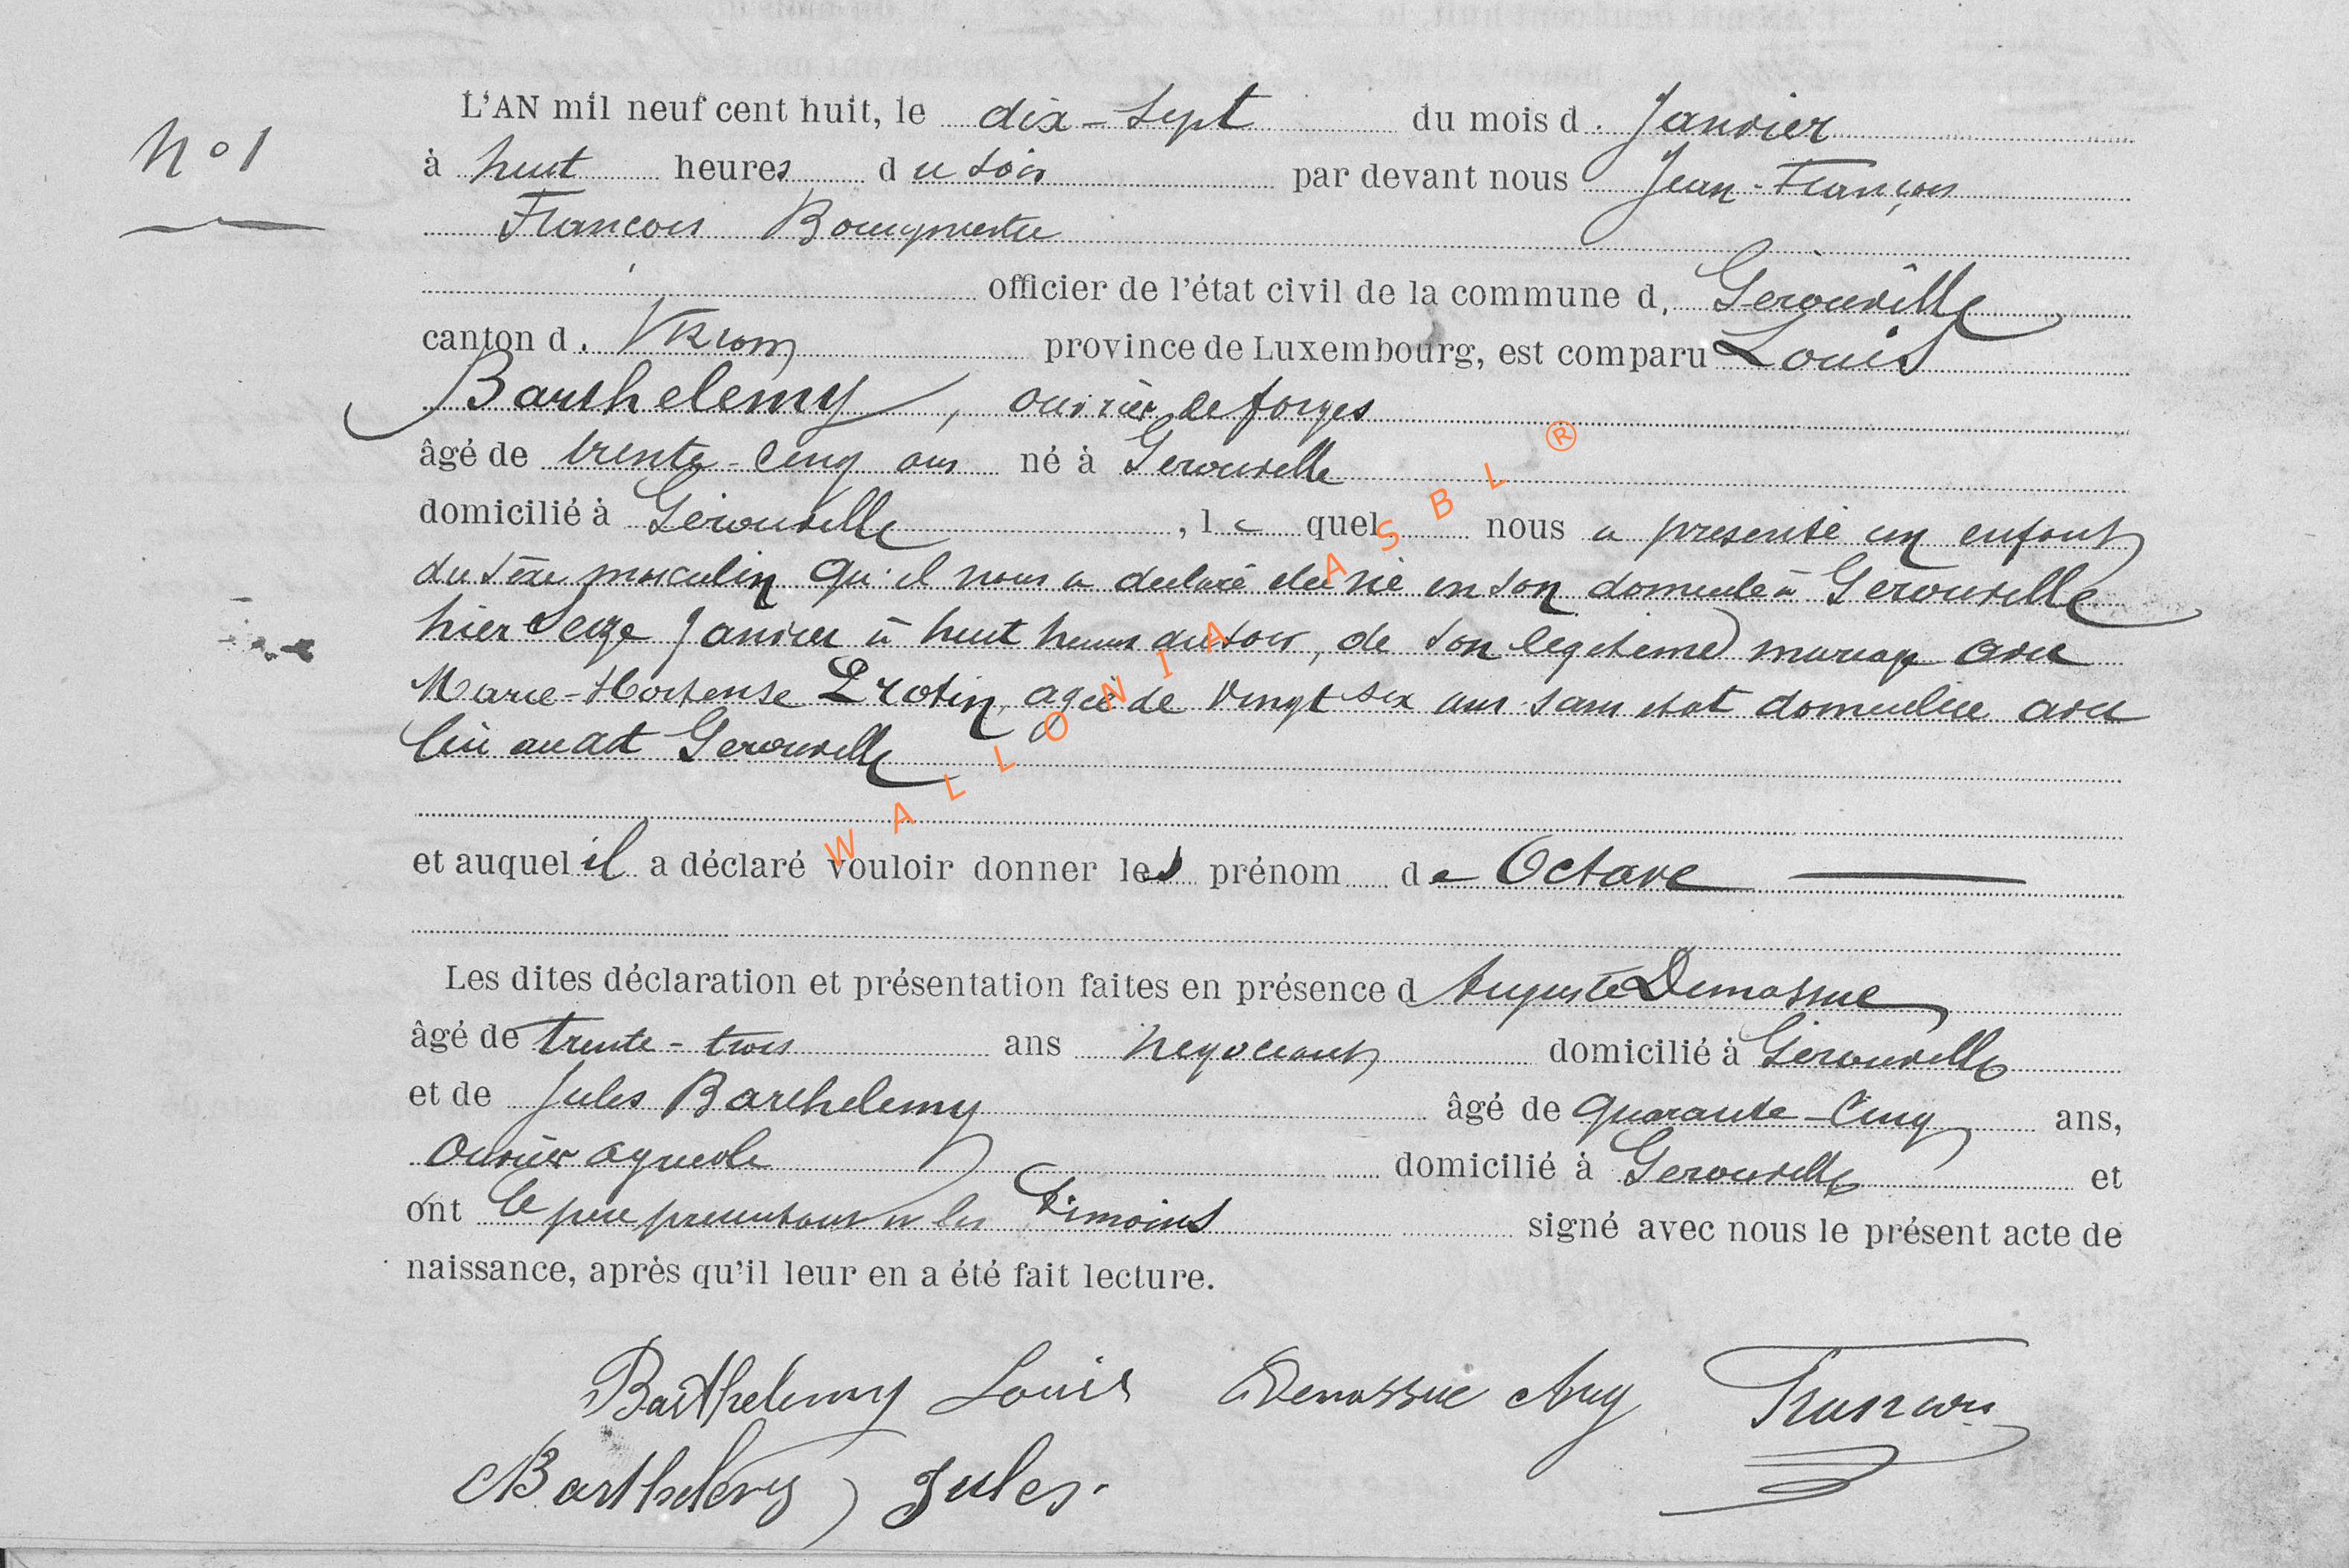 N° 1
L'AN mil neuf cent huit, le dix-sept du mois d. Janvier
à huit heures du soir par devant nous Jean-François
François Bourgmestre
officier de l'état civil de la commune d. Gérouville
canton d. Virton province de Luxembourg, est comparu Louis
Barthelemy, ouvrier de forges
âgé de trente-cinq ans né à Gerouville
domicilié à Gérouville, le quel nous a presenté un enfant
du sexe masculin qu'il nous a declaré etre né en son domicile à Gerouville
hier seize Janvier à huit heures du soir, de son legitime mariage avec
Marie-Hortense Protin, agée de vingt six ans sans etat domiciliée avec
lui audit Gerouville
et auquel il a déclaré vouloir donner les prénom de Octave
Les dites déclaration et présentation faites en présence d Auguste Demassue
âgé de trente-trois ans negociant domicilié à Gerouville
et de Jules Barthelemy âgé de quarante-cinq ans,
ouvrier agricole domicilié à Gerouville et
ont le père presentant et les témoins signé avec nous le présent acte de
naissance, après qu'il leur en a été fait lecture.
Barthelemy Louis Demassue Aug François
Barthelemy Jules.
WALLONIA ASBL ®